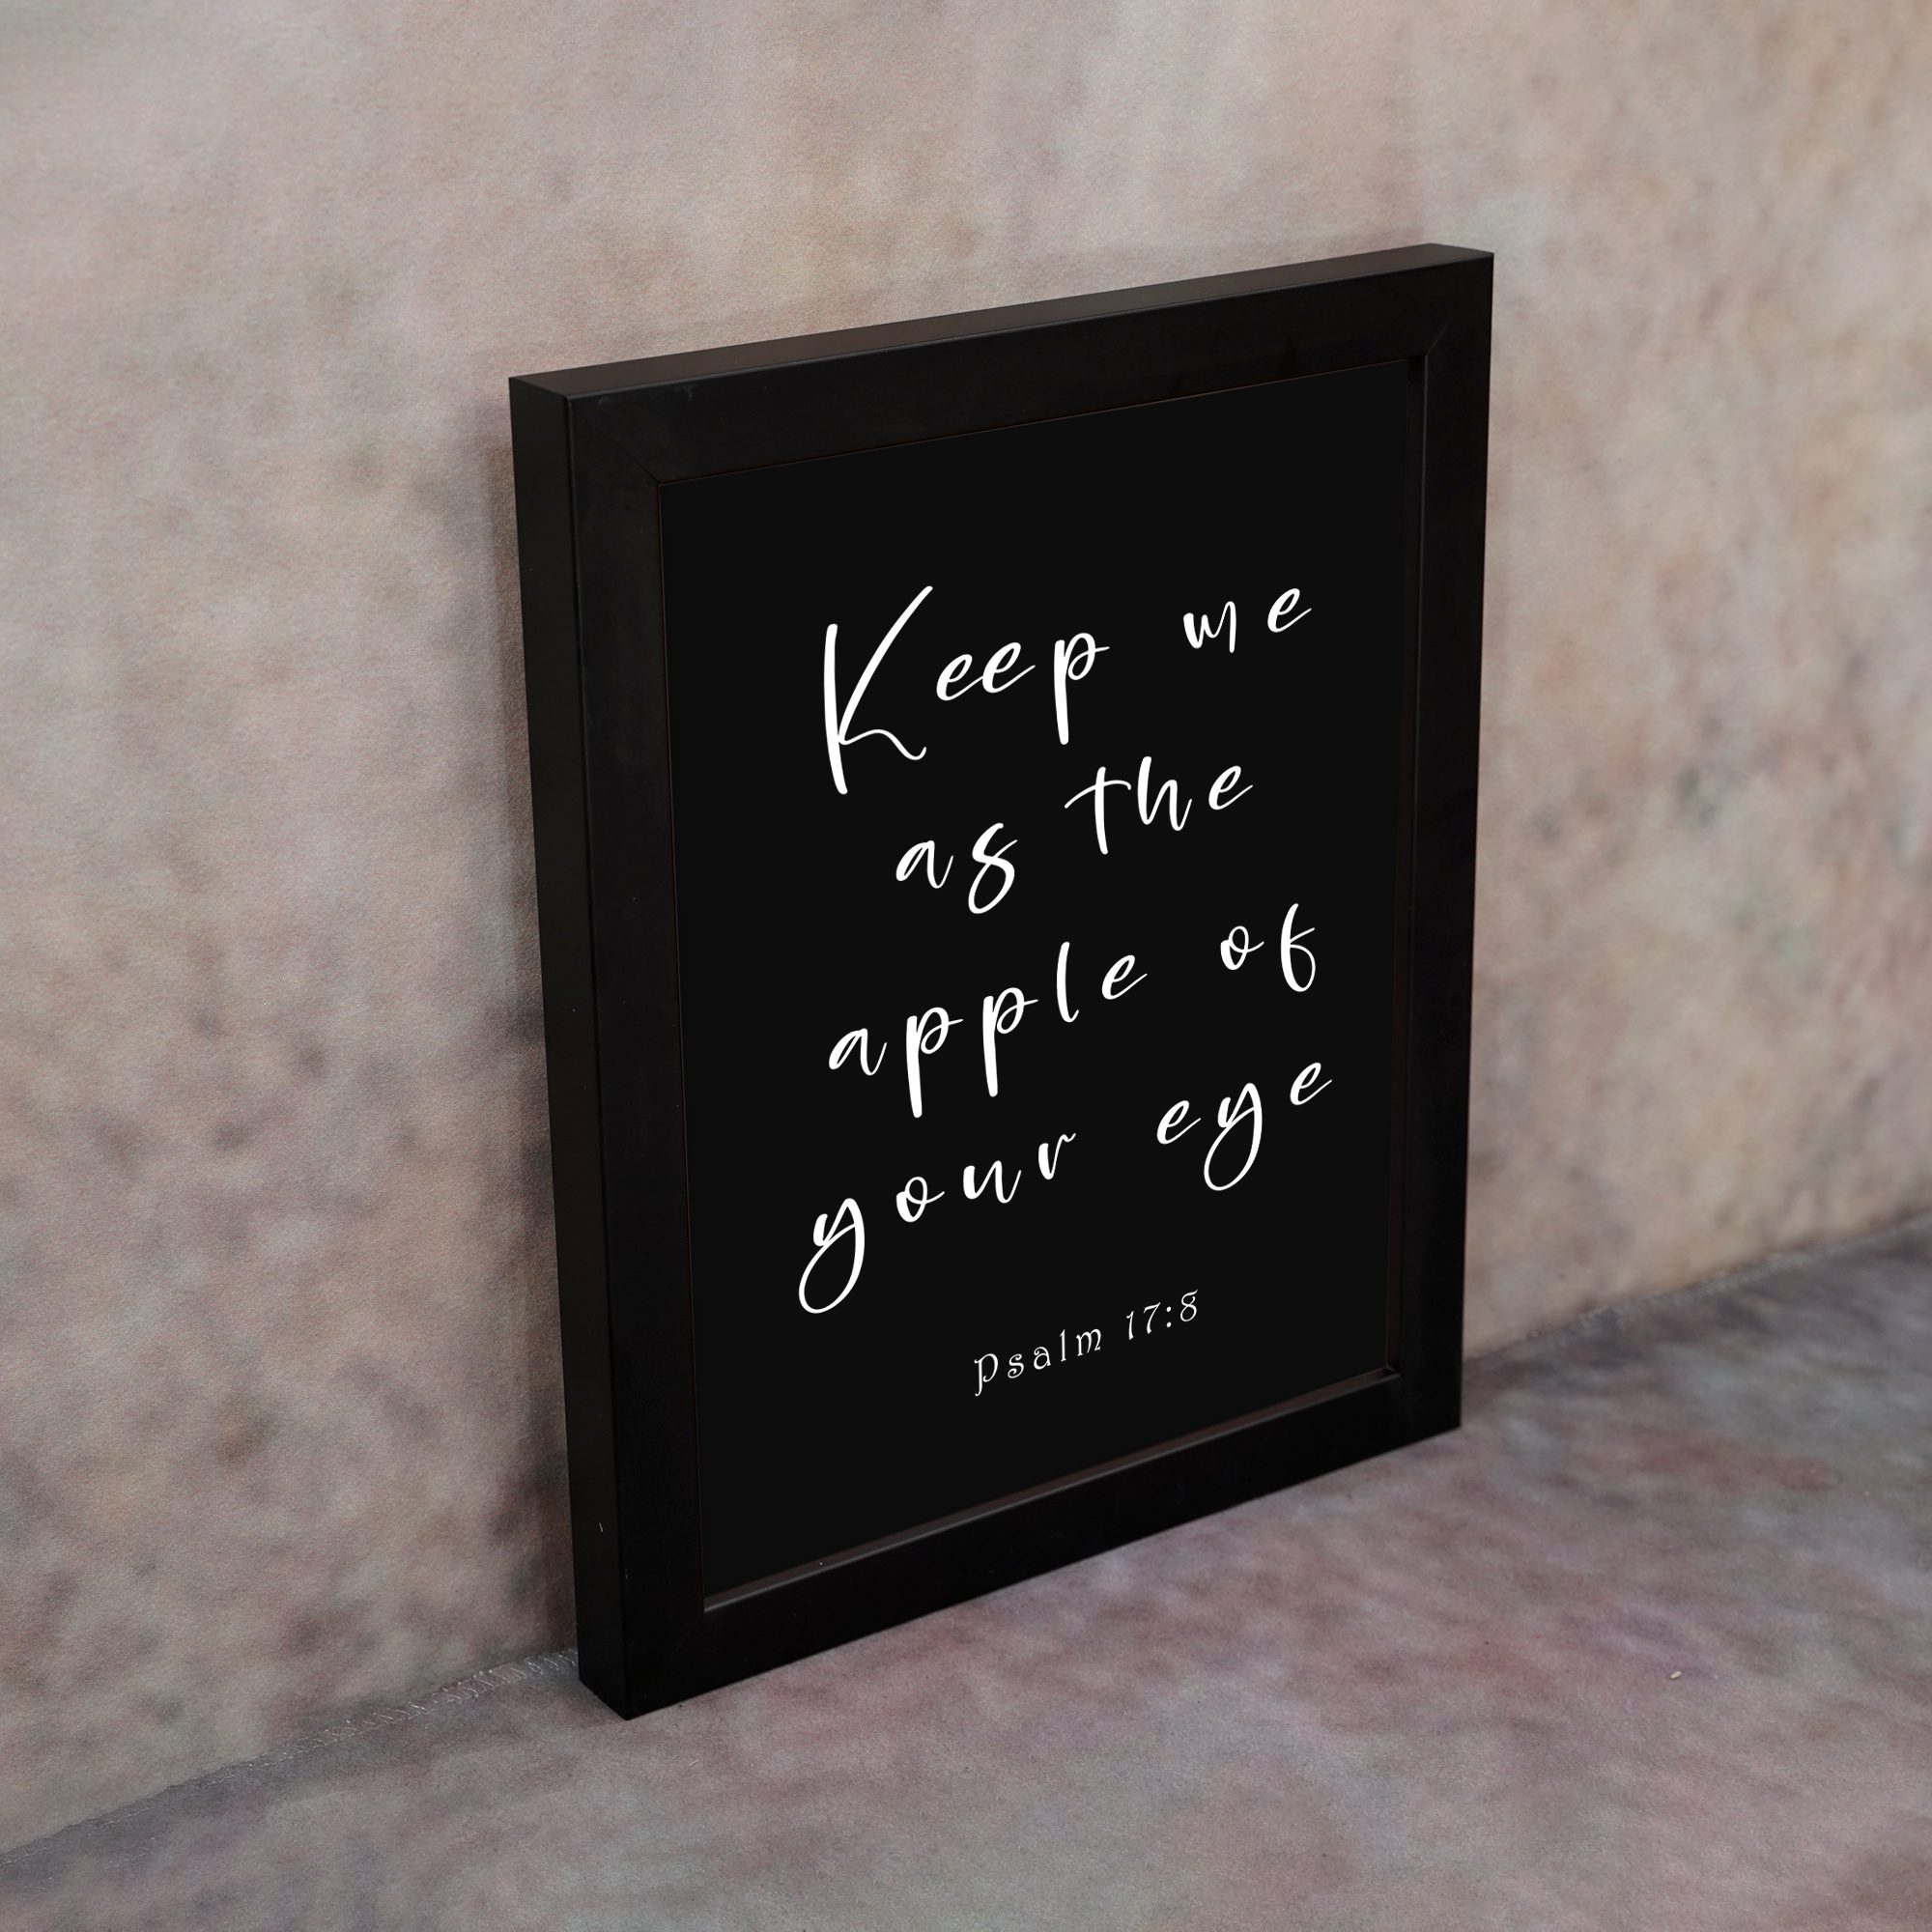 Keep me
as the
apple of
your eye
Psalm 17:8